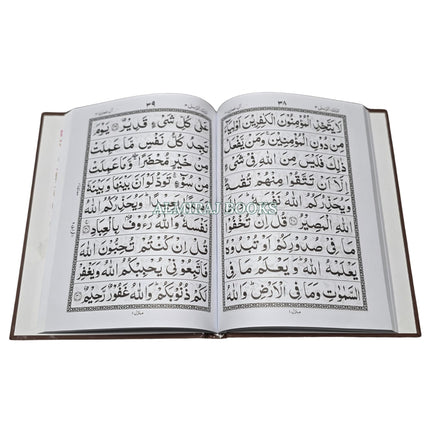 ٣٨
لَا يَتَّخِذِ الْمُؤْمِنُوْنَ الْكٰفِرِيْنَ اَوْلِيَآءَ
مِنْ دُوْنِ الْمُؤْمِنِيْنَ ۚ وَمَنْ يَّفْعَلْ
ذٰلِكَ فَلَيْسَ مِنَ اللّٰهِ فِيْ شَيْءٍ
اِلَّاۤ اَنْ تَتَّقُوْا مِنْهُمْ تُقٰىةً ؕ
وَيُحَذِّرُكُمُ اللّٰهُ نَفْسَهٗ ؕ وَاِلَى
اللّٰهِ الْمَصِيْرُ قُلْ اِنْ تُخْفُوْا
مَا فِيْ صُدُوْرِكُمْ اَوْ تُبْدُوْهُ
يَعْلَمْهُ اللّٰهُ ؕ وَيَعْلَمُ مَا فِي
السَّمٰوٰتِ وَمَا فِي الْاَرْضِ ؕ وَاللّٰهُ
٣٩
عَلٰى كُلِّ شَيْءٍ قَدِيْرٌ يَوْمَ
تَجِدُ كُلُّ نَفْسٍ مَّا عَمِلَتْ
مِنْ خَيْرٍ مُّحْضَرًا ۛۚ وَّمَا عَمِلَتْ
مِنْ سُوْٓءٍ ۛۚ تَوَدُّ لَوْ اَنَّ بَيْنَهَا وَبَيْنَهٗۤ
اَمَدًۢا بَعِيْدًا ؕ وَيُحَذِّرُكُمُ اللّٰهُ
نَفْسَهٗ ؕ وَاللّٰهُ رَءُوْفٌۢ بِالْعِبَادِ
قُلْ اِنْ كُنْتُمْ تُحِبُّوْنَ اللّٰهَ
فَاتَّبِعُوْنِيْ يُحْبِبْكُمُ اللّٰهُ وَيَغْفِرْ
لَكُمْ ذُنُوْبَكُمْ ؕ وَاللّٰهُ غَفُوْرٌ رَّحِيْمٌ
ALMIRAJ BOOKS